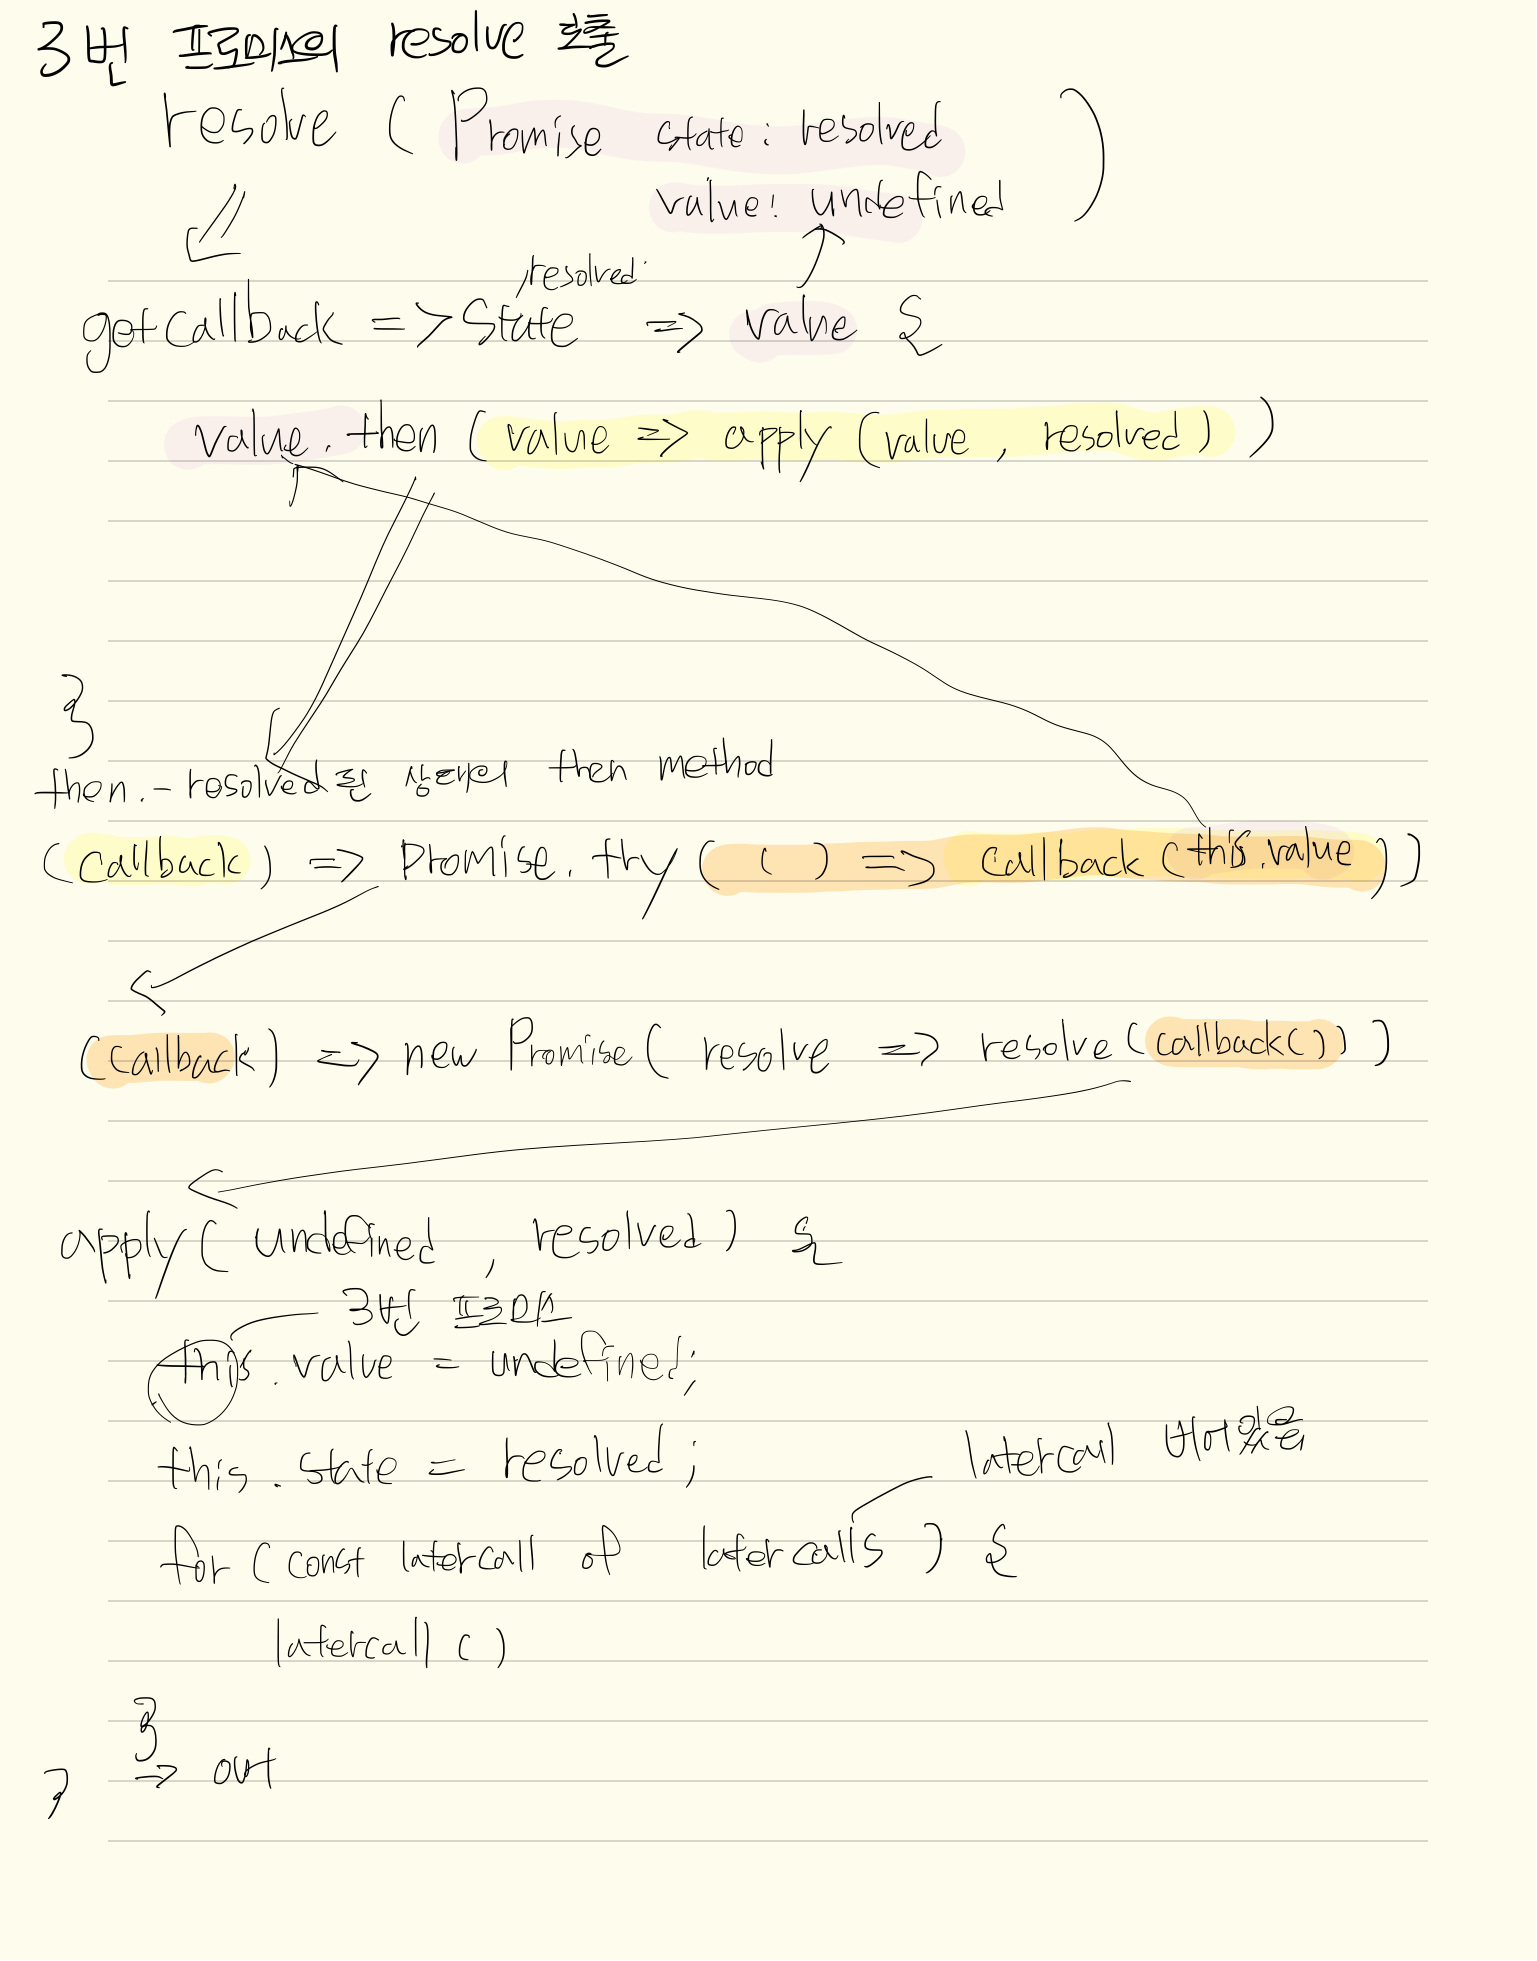 3번 프로미스의 resolve 호출
resolve ( Promise state : resolved )
value : undefined
, resolved
getCallback => State => value {
value . then ( value => apply ( value , resolved ) )
}
then. - resolved된 상태의 then method
(callback) => Promise. try ( ( ) => callback (this.value ))
(callback) => new Promise( resolve => resolve (callback()) )
apply ( undefined , resolved ) {
3번 프로미스
this . value = undefined;
this . state = resolved ;
latercall 비어있음
for ( const latercall of latercalls ) {
latercall ( )
}
=> out
}